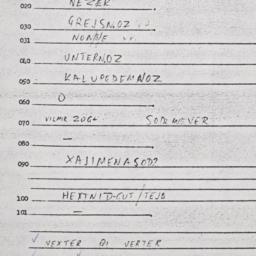 020 NEZER
030 GREJSNOZ
031 NONNE
040 UNTERNOZ
050 KALUPEDEMNOZ
060 O
070 VILMR ZOG+ SORMEVER
080 —
090 XAJIMENASOD?
100 HEXTNID-CUT/TEJB
101 —
VEXTER OI VERTER